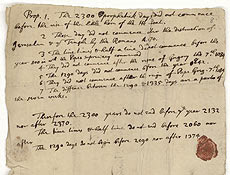 Prop. 1. The 2300 prophetick days did not commence
before the rise of the little horn of the He Goat.
2 Those day did not commence after the destruction of
Jerusalem & ye Temple by the Romans A.
3 The time times & half a time did not commence before the
year 800 in wch the Popes supremacy commenced
4 They did not commence after the reigne of Gregory the 7th
5 The 1290 days did not commence before the year 842.
6 The 1290 days did not commence after the reigne of Pope Greg. 7th
7 The difference between the 1290 & 1335 days are a parts of
the seven weeks.
Therefore the 2300 years do not end before ye year 2132
nor after 2370.
The time times & half time do not end before 2060 nor
after
The 1290 days do not begin before 2090 nor after 1374